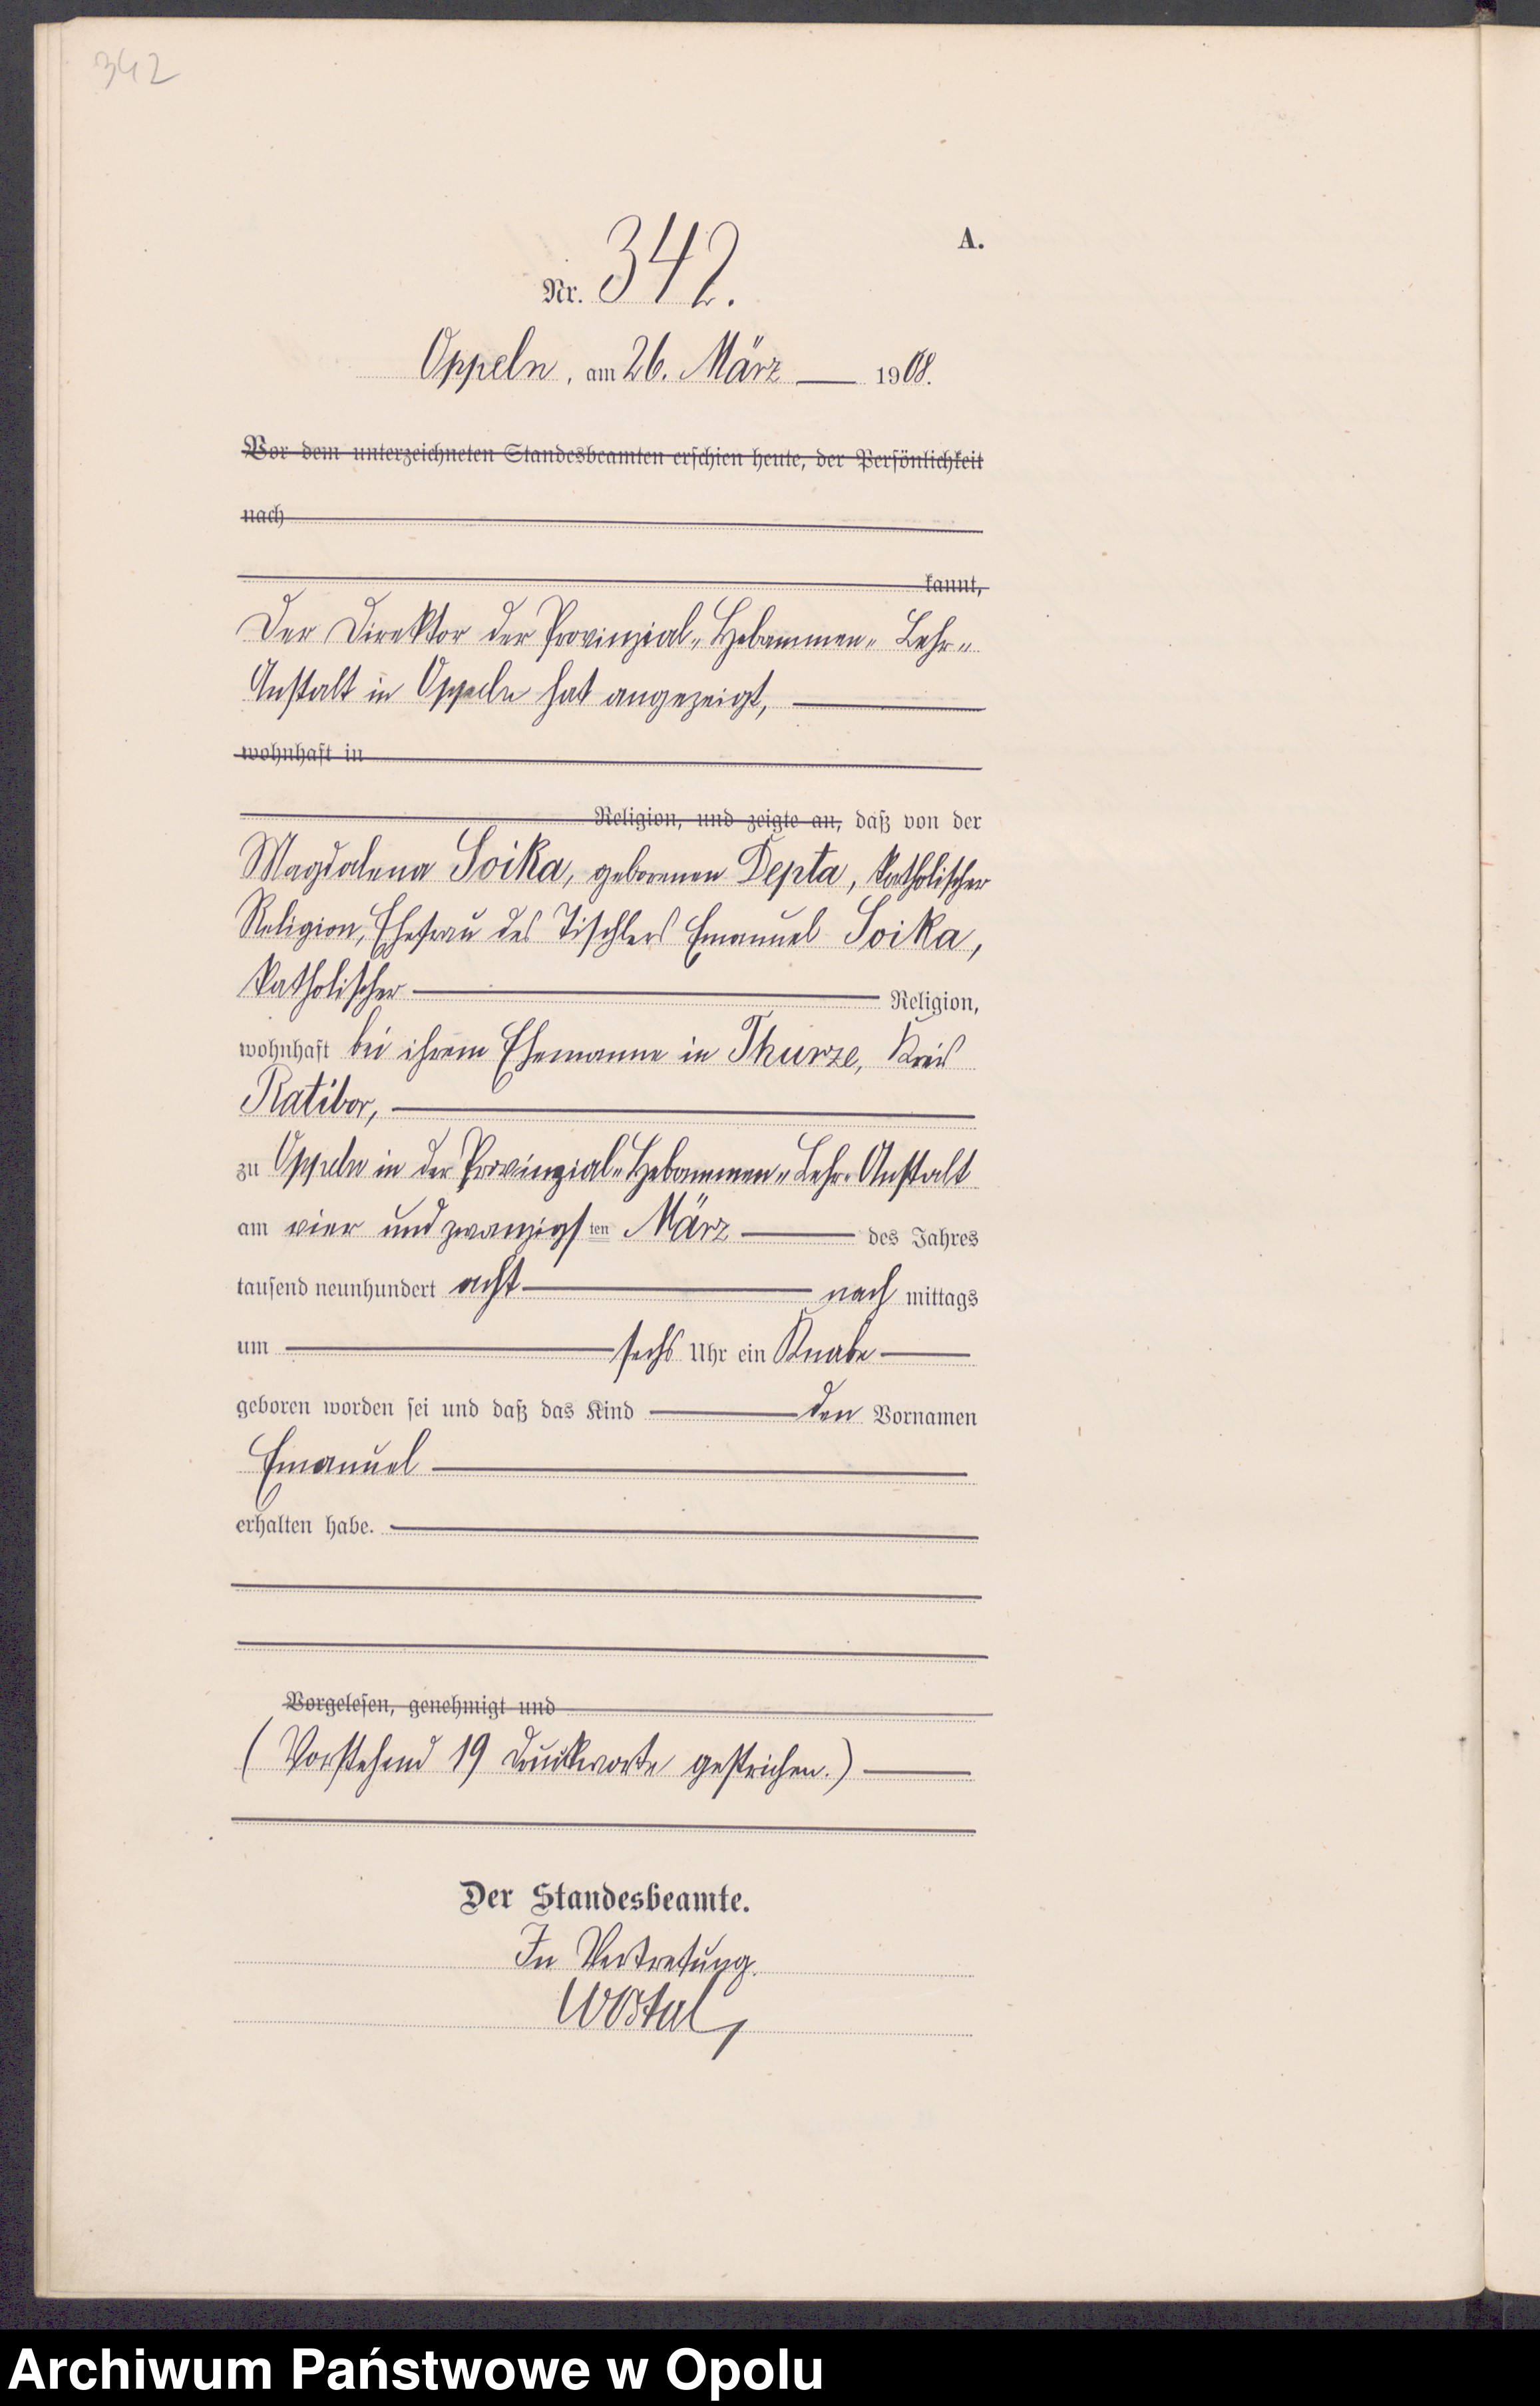 342
A.
Nr. 342.
Oppeln, am 26. März 1908.
Vor dem unterzeichneten Standesbeamten erschien heute, der Persönlichkeit
nach
kannt,
Der Direktor der Provinzial-Hebammen-Lehr-
Anstalt in Oppeln hat angezeigt,
wohnhaft in
Religion, und zeigte an, daß von der
Magdalena Soika, geborenen Depta, katholischer
Religion, Ehefrau des Tischlers Emanuel Soika,
katholischer Religion,
wohnhaft bei ihrem Ehemanne in Thurze, Kreis
Ratibor,
zu Oppeln in der Provinzial-Hebammen-Lehr-Anstalt
am vier und zwanzigsten März des Jahres
tausend neunhundert acht nach mittags
um sechs Uhr ein Knabe
geboren worden sei und daß das Kind den Vornamen
Emanuel
erhalten habe.
Vorgelesen, genehmigt und
(Vorstehend 19 Druckworte gestrichen.)
Der Standesbeamte.
In Vertretung.
Archiwum Państwowe w Opolu